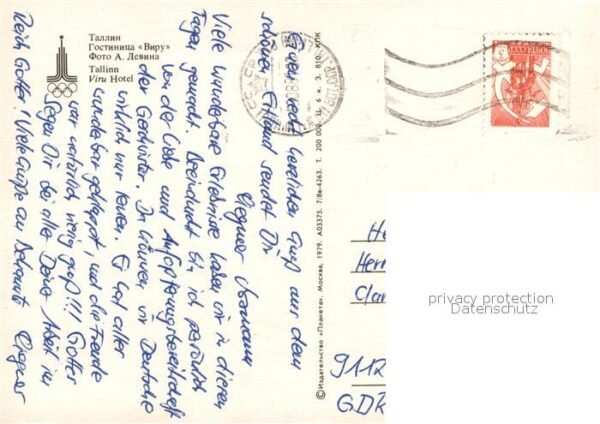 Таллин
Гостиница «Виру»
Фото А. Левина
Tallinn
Viru Hotel
Einen recht herzlichen Gruß aus dem
schönen Estland sendet Dir
Viele wunderbare Erlebnisse haben wir in diesen
Tagen gemacht. Beeindruckt bin ich persönlich
von der Liebe und Aufopferungsbereitschaft
der Geschwister. Da können in Deutsche
wirklich nur lernen. Es hat alles
wunderbar geklappt, und die Freude
war natürlich riesig groß!!! Gottes
Segen Dir bei aller Deiner Arbeit im
Reich Gottes. Viele Grüße an Bekannte
© Издательство «Планета». Москва, 1979. А03375. 7/8в-4263. Т. 200 000. Ц. 6 к. З. 810. КПК
ПОЧТА СССР
He
Herr
Clar
9112
GDR
privacy protection
Datenschutz